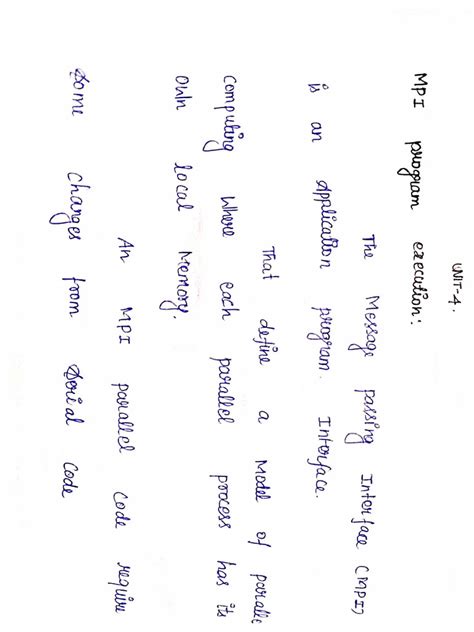 UNIT-4.
MPI program execution:
The Message passing Interface (MPI)
is an Application program. Interface.
That define a Model of paralle
computing Where each parallel process has its
own local Memory.
An MPI parallel code require
Some changes from Serial Code